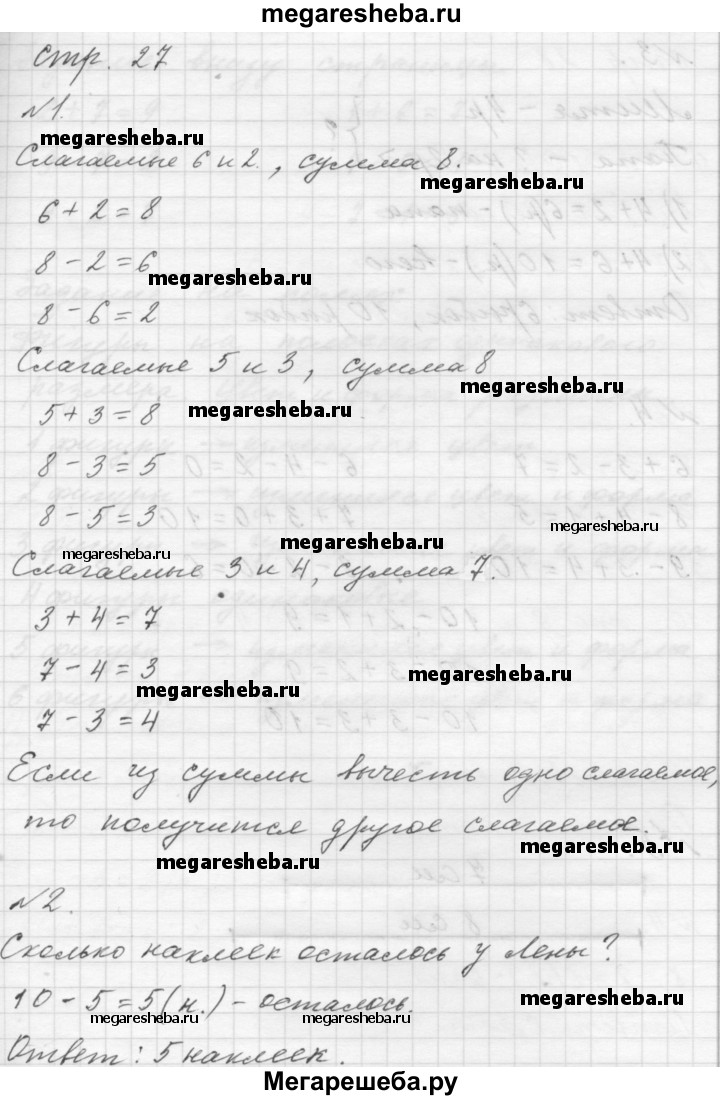 megaresheba.ru
стр. 27
№1.
megaresheba.ru
Слагаемые 6 и 2, сумма 8.
megaresheba.ru
6 + 2 = 8
8 - 2 = 6
megaresheba.ru
8 - 6 = 2
Слагаемые 5 и 3, сумма 8
megaresheba.ru
5 + 3 = 8
megaresheba.ru
8 - 3 = 5
8 - 5 = 3
megaresheba.ru
megaresheba.ru
megaresheba.ru
Слагаемые 3 и 4, сумма 7.
3 + 4 = 7
7 - 4 = 3
megaresheba.ru
megaresheba.ru
7 - 3 = 4
Если из суммы вычесть одно слагаемое,
то получится другое слагаемое.
megaresheba.ru
megaresheba.ru
№2.
Сколько наклеек осталось у Лены?
10 - 5 = 5 (н.) - осталось.
megaresheba.ru
megaresheba.ru
megaresheba.ru
Ответ: 5 наклеек.
Мегарешеба.ру